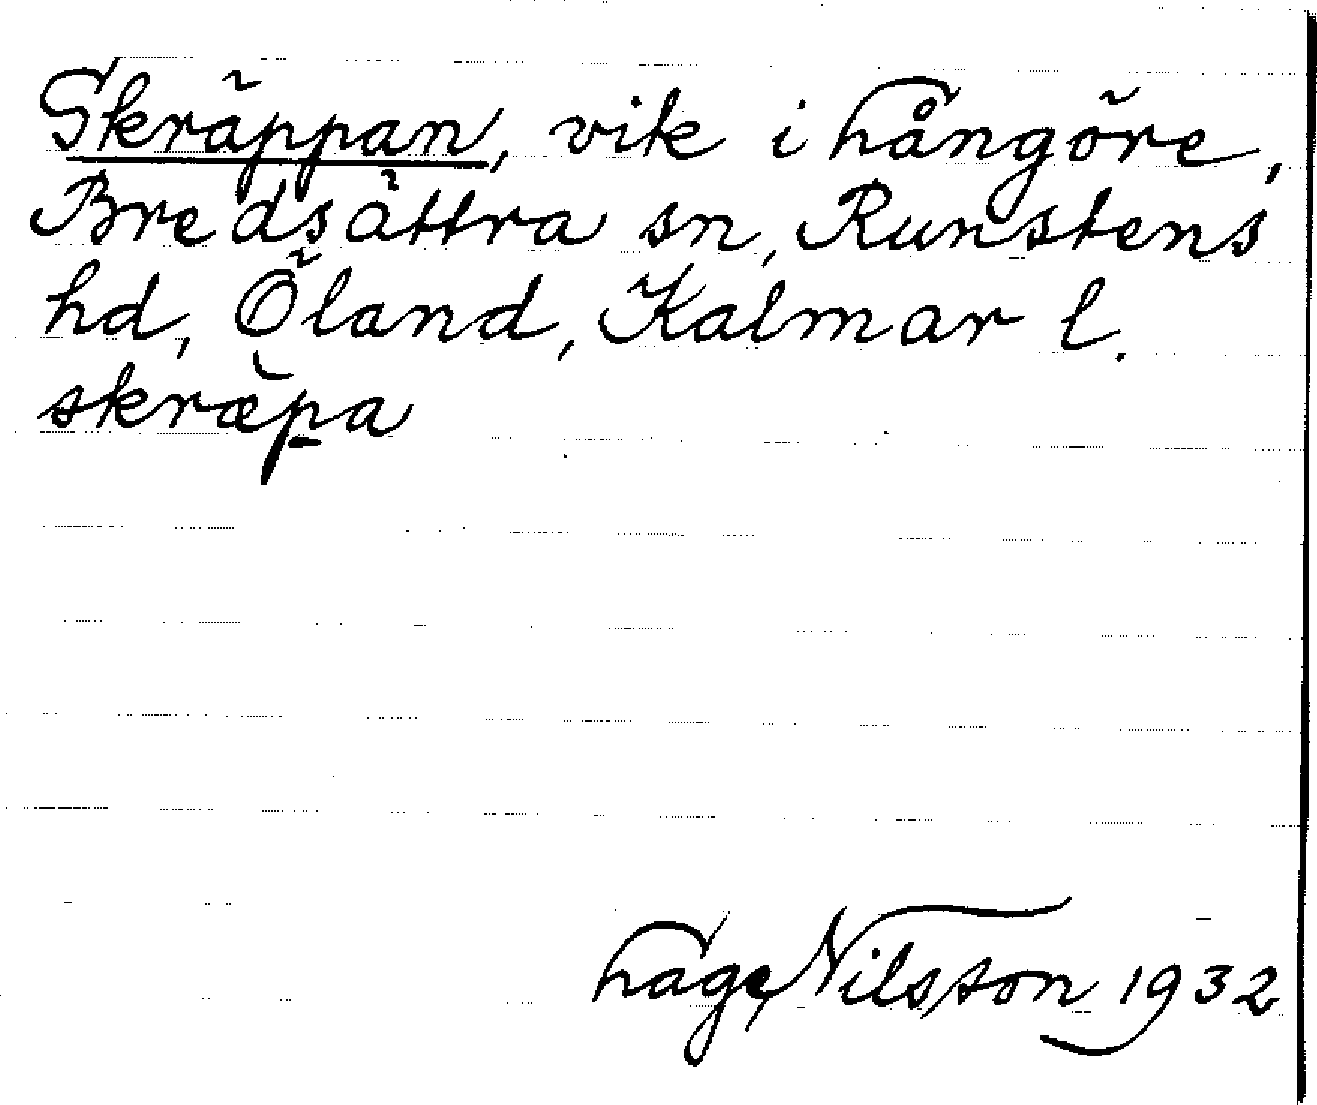 Skräppan, vik i Långöre,
Bredsättra sn, Runstens
hd, Öland, Kalmar l.
skræ̀p̠a
Lage Nilsson 1932